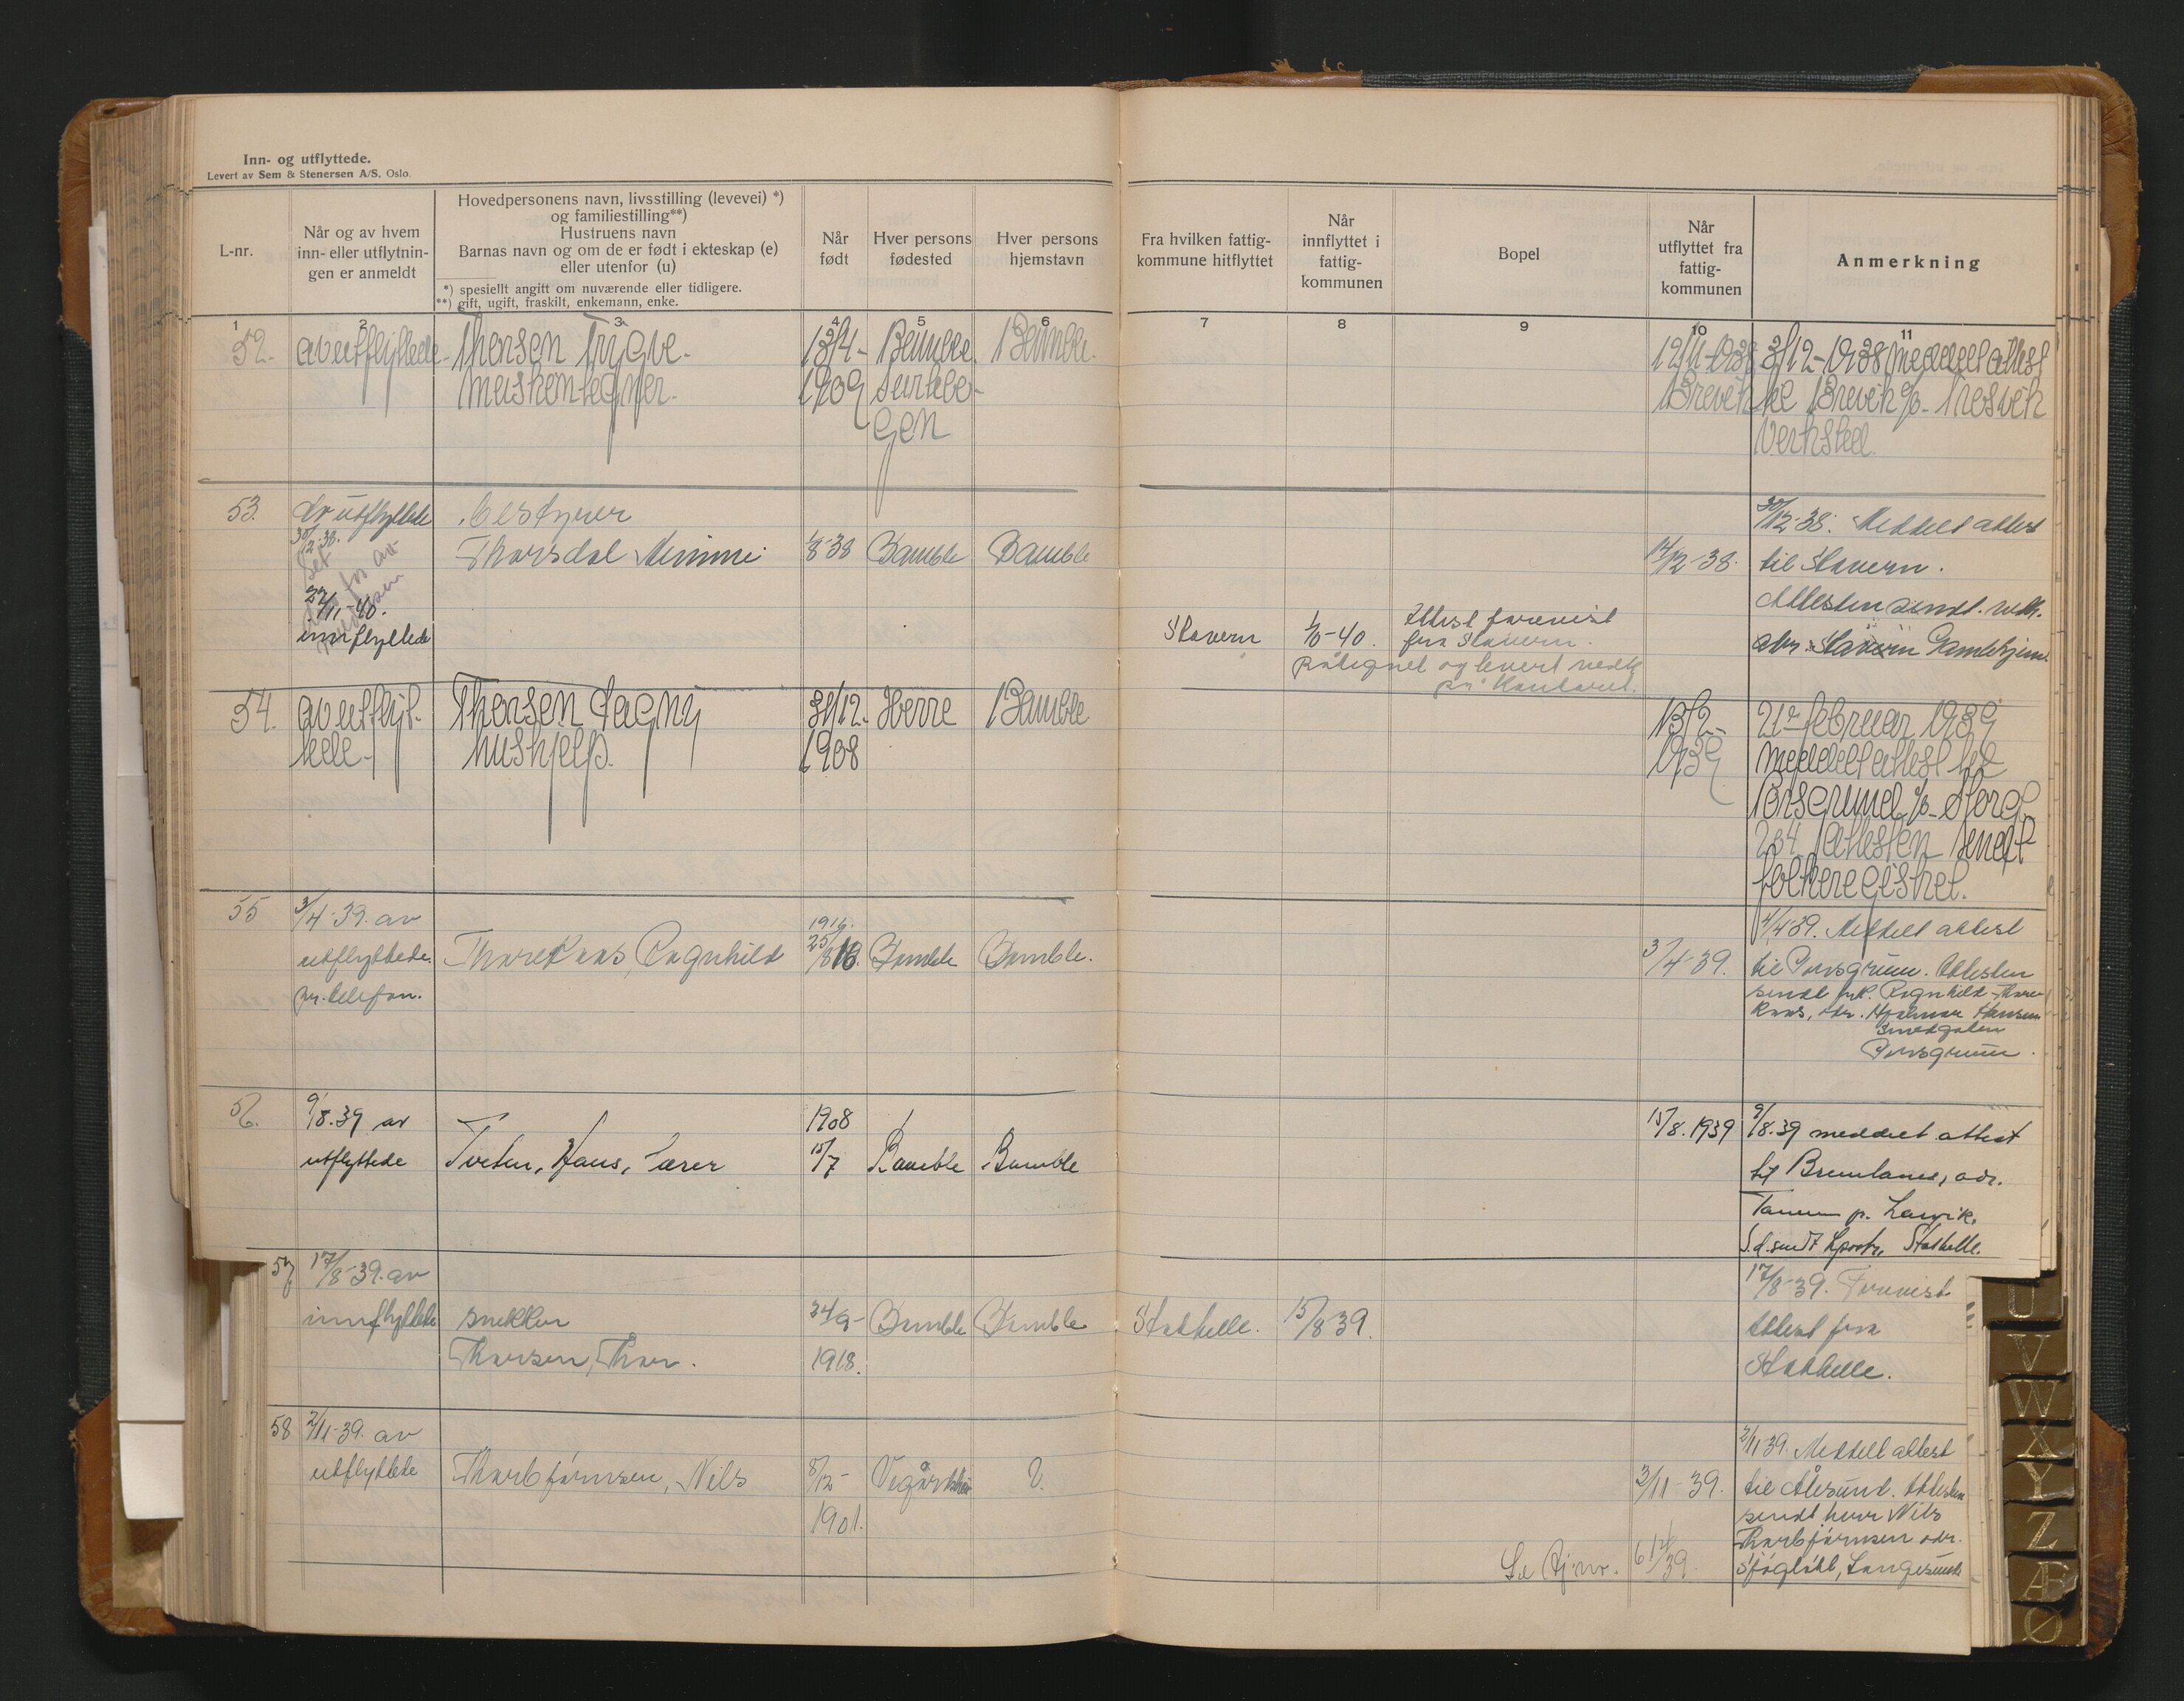 Inn- og utflyttede.
Levert av Sem & Stenersen A/S, Oslo.
L-nr.
Når og av hvem
inn- eller utflytnin-
gen er anmeldt
Hovedpersonens navn, livsstilling (levevei) *)
og familiestilling**)
Hustruens navn
Barnas navn og om de er født i ekteskap (e)
eller utenfor (u)
*) spesiellt angitt om nuværende eller tidligere.
**) gift, ugift, fraskilt, enkemann, enke.
Når
født
Hver persons
fødested
Hver persons
hjemstavn
Fra hvilken fattig-
kommune hitflyttet
Når
innflyttet i
fattig-
kommunen
Bopel
Når
utflyttet fra
fattig-
kommunen
Anmerkning
1 2 3 4 5 6 7 8 9 10 11
52. av utflyttede Thorsen Trygve. 13/4- Bamble Bamble. 12/11-1938 3/12-1938 meddelt attest
1909 Brevik til Brevik
gen Verksted.
53. Av utflyttede bestyrer 30/12-38. Meddelt attest
30/12-38.
Thorsdal Mimmi Bamble Bamble 14/12-38. til Stavern.
27/11-40. Attesten sendt vedk.
innflyttede Stavern 1/6-40. Attest forevist adr. Stavern Gamlehjem.
fra Stavern.
Påtegnet og levert vedk.
på kontoret.
54. av utflyt- Thorsen Dagny 31/12- Herre Bamble 13/2- 21de februar 1939
tede- hushjelp. 1908 1939 meddelt attest til
Porsgrund Storg.
234 attesten sendt
folkeregistret.
55 3/4-39. av 1916. 4/4 39. Meddelt attest
utflyttede Ragnhild 25/8 16. Bamble Bamble. 3/4-39. til Porsgrunn. Attesten
pr. telefon. sendt frk. Ragnhild
Hjalmar Hansen
Smedgaten
Porsgrunn.
56. 9/8.39 av 1908 15/8.1939 9/8.39 meddelt attest
utflyttede Tveten, Hans, lærer 15/7 Bamble Bamble til Brunlanes, adr.
Tanum p. Larvik.
Stathelle.
57 17/8-39. av 17/8-39. Forevist
innflyttede snekker 24/9- Bamble Bamble Stathelle. 15/8-39. Attest fra
Thorsen, Thor. 1918. Stathelle.
58 2/11-39. av 2/11 39. Meddelt attest
utflyttede Thorbjørnsen, Nils 8/12- Vegårshei ?. 3/11-39. til Ålesund. Attesten
1901. sendt herr Nils
Thorbjørnsen adr.
Sjøgløtt, Langesund
U
V
W
X
Y
Z
Æ
Ø